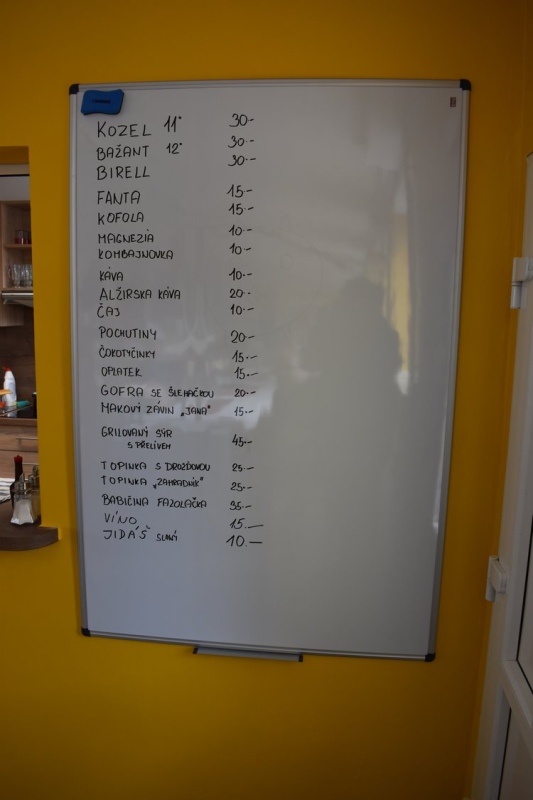 KOZEL 11° 30.-
BAŽANT 12° 30.-
BIRELL 30.-
FANTA 15.-
KOFOLA 15.-
MAGNEZIA 10.-
KOMBAJNOVKA 10.-
KÁVA 10.-
ALŽIRSKA KÁVA 20.-
ČAJ 10.-
POCHUTINY 20.-
ČOKOTYČINKY 15.-
OPLATEK 15.-
GOFRA SE ŠLEHAČKOU 20.-
MAKOVÝ ZÁVIN „JANA" 15.-
GRILOVANÝ SÝR
S PŘELIVEM 45.-
TOPINKA S DROŽĎOVOU 25.-
TOPINKA „ZAHRADNÍK" 25.-
BABIČINA FAZOLAČKA 35.-
VÍNO 15.-
JIDÁŠ 10.-